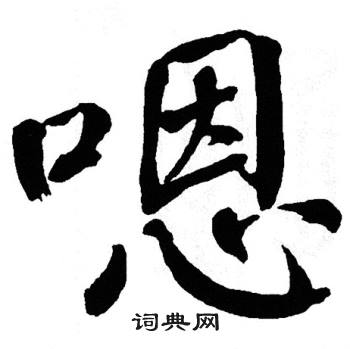 嗯
词典网